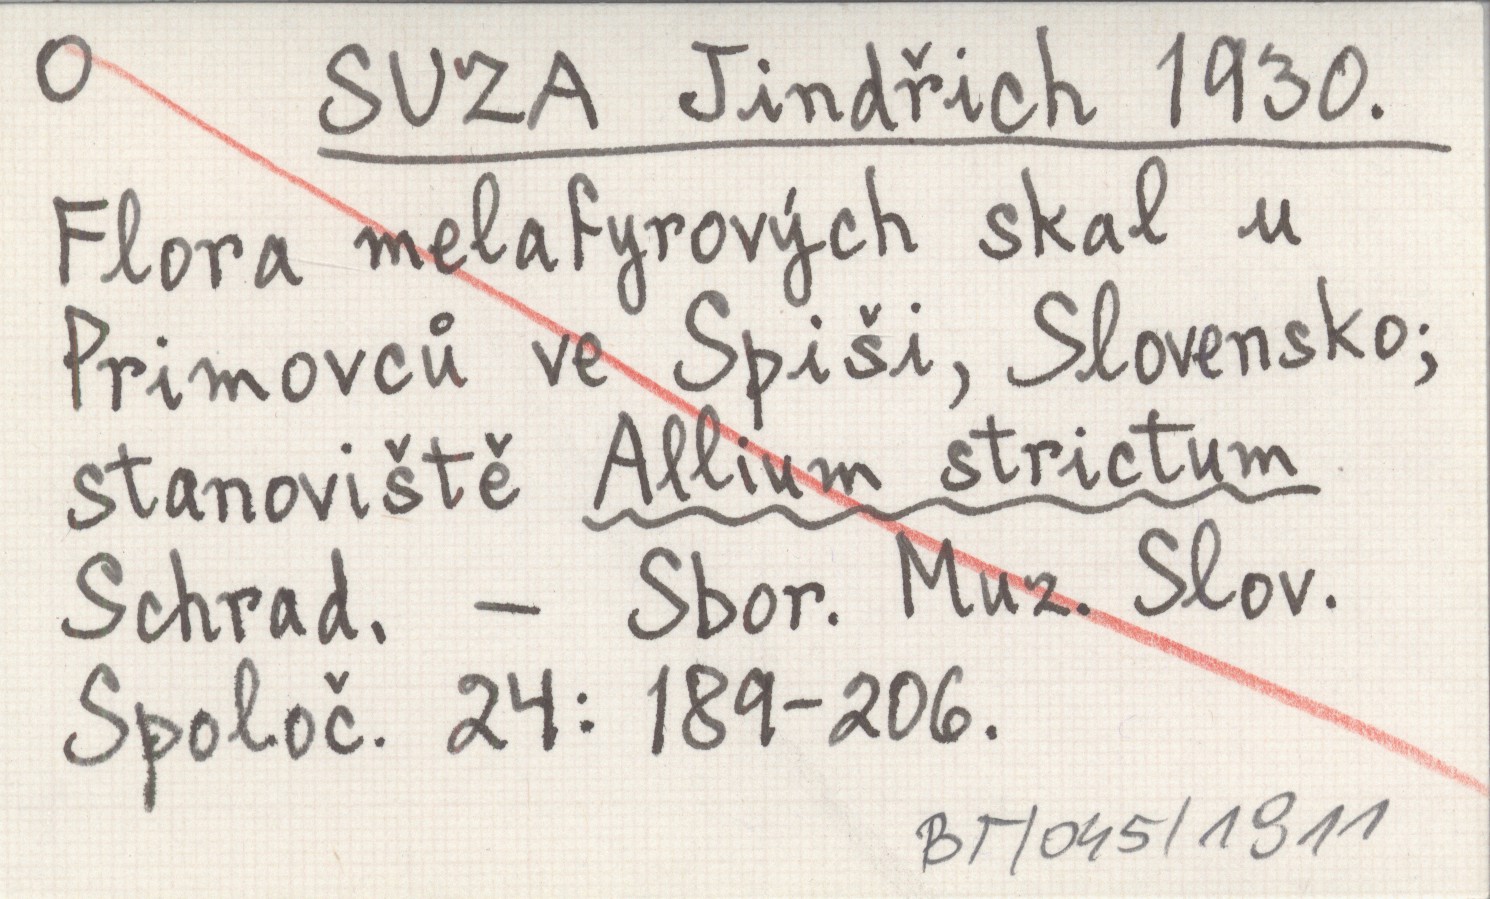 O SUZA Jindřich 1930.
Flora melafyrových skal u
Primovců ve Spiši, Slovensko;
stanoviště Allium strictum
Schrad. – Sbor. Muz. Slov.
Spoloč. 24: 189-206.
BT/045/1911